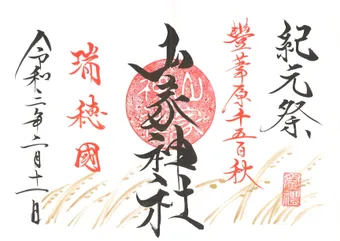 紀元祭
豐葦原千五百秋
山家神社
瑞穂國
令和二年二月十一日